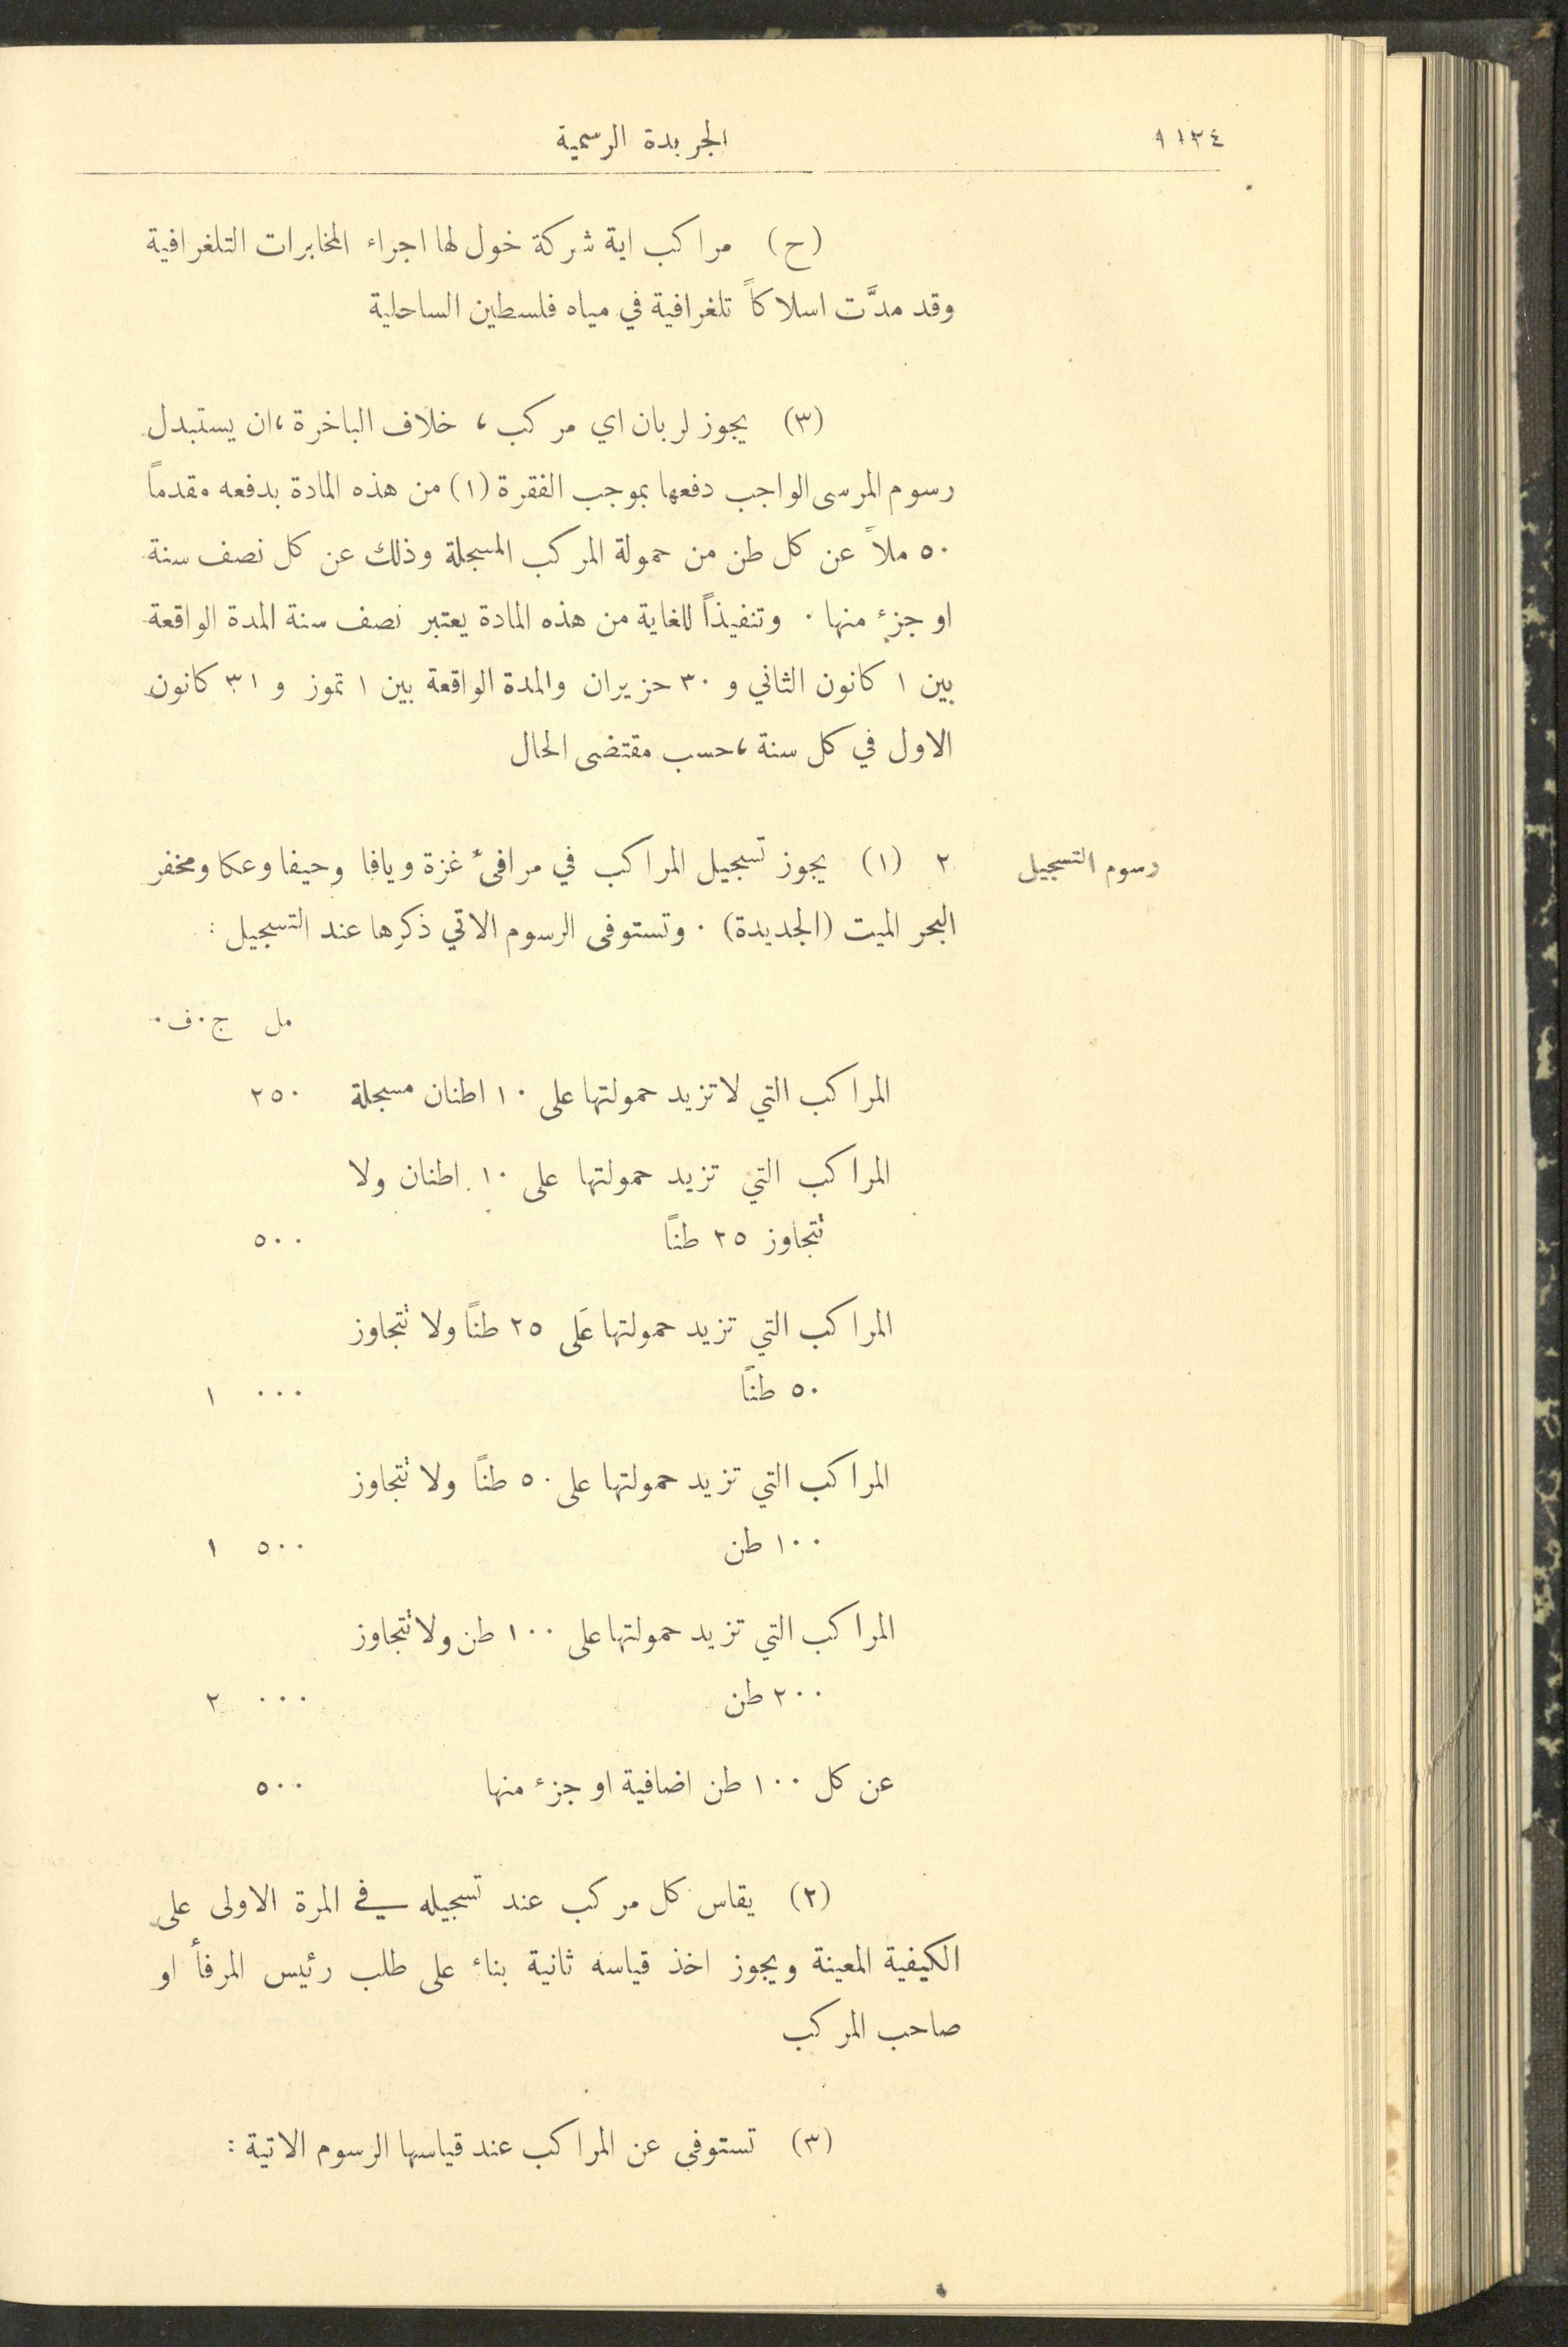 ١١٣٤
الجريدة الرسمية
(ح) مراكب اية شركة خول لها اجراء المخابرات التلغرافية
وقد مدَّت اسلاكاً تلغرافية في مياه فلسطين الساحلية
(٣) يجوز لربان اي مركب ، خلاف الباخرة ،ان يستبدل
رسوم المرسى الواجب دفعها بموجب الفقرة (١) من هذه المادة بدفعه مقدماً
٥٠ ملاً عن كل طن من حمولة المركب المسجلة وذلك عن كل نصف سنة
او جزء منها . وتنفيذاً للغاية من هذه المادة يعتبر نصف سنة المدة الواقعة
بين ١ كانون الثاني و ٣٠ حزيران والمدة الواقعة بين ١ تموز و ٣١ كانون
الاول في كل سنة ، حسب مقتضى الحال
رسوم التسجيل
٢ (١) يجوز تسجيل المراكب في مرافئ غزة ويافا وحيفا وعكا ومخفر
البحر الميت (الجديدة) . وتستوفى الرسوم الاتي ذكرها عند التسجيل :
مل ج.ف.
المراكب التي لا تزيد حمولتها على ١٠ اطنان مسجلة ٢٥٠
المراكب التي تزيد حمولتها على ١٠ اطنان ولا
تتجاوز ٢٥ طنًا ٥٠٠
المراكب التي تزيد حمولتها عَلى ٢٥ طنًا ولا تتجاوز
٥٠ طنًا ٠٠٠ ١
المراكب التي تزيد حمولتها على ٥٠ طنًا ولا تتجاوز
١٠٠ طن ٥٠٠ ١
المراكب التي تزيد حمولتها على ١٠٠ طن ولا تتجاوز
٢٠٠ طن ٠٠٠ ٢
عن كل ١٠٠ طن اضافية او جزء منها ٥٠٠
(٢) يقاس كل مركب عند تسجيله في المرة الاولى على
الكيفية المعينة ويجوز اخذ قياسه ثانية بناء على طلب رئيس المرفأ او
صاحب المركب
(٣) تستوفى عن المراكب عند قياسها الرسوم الاتية :